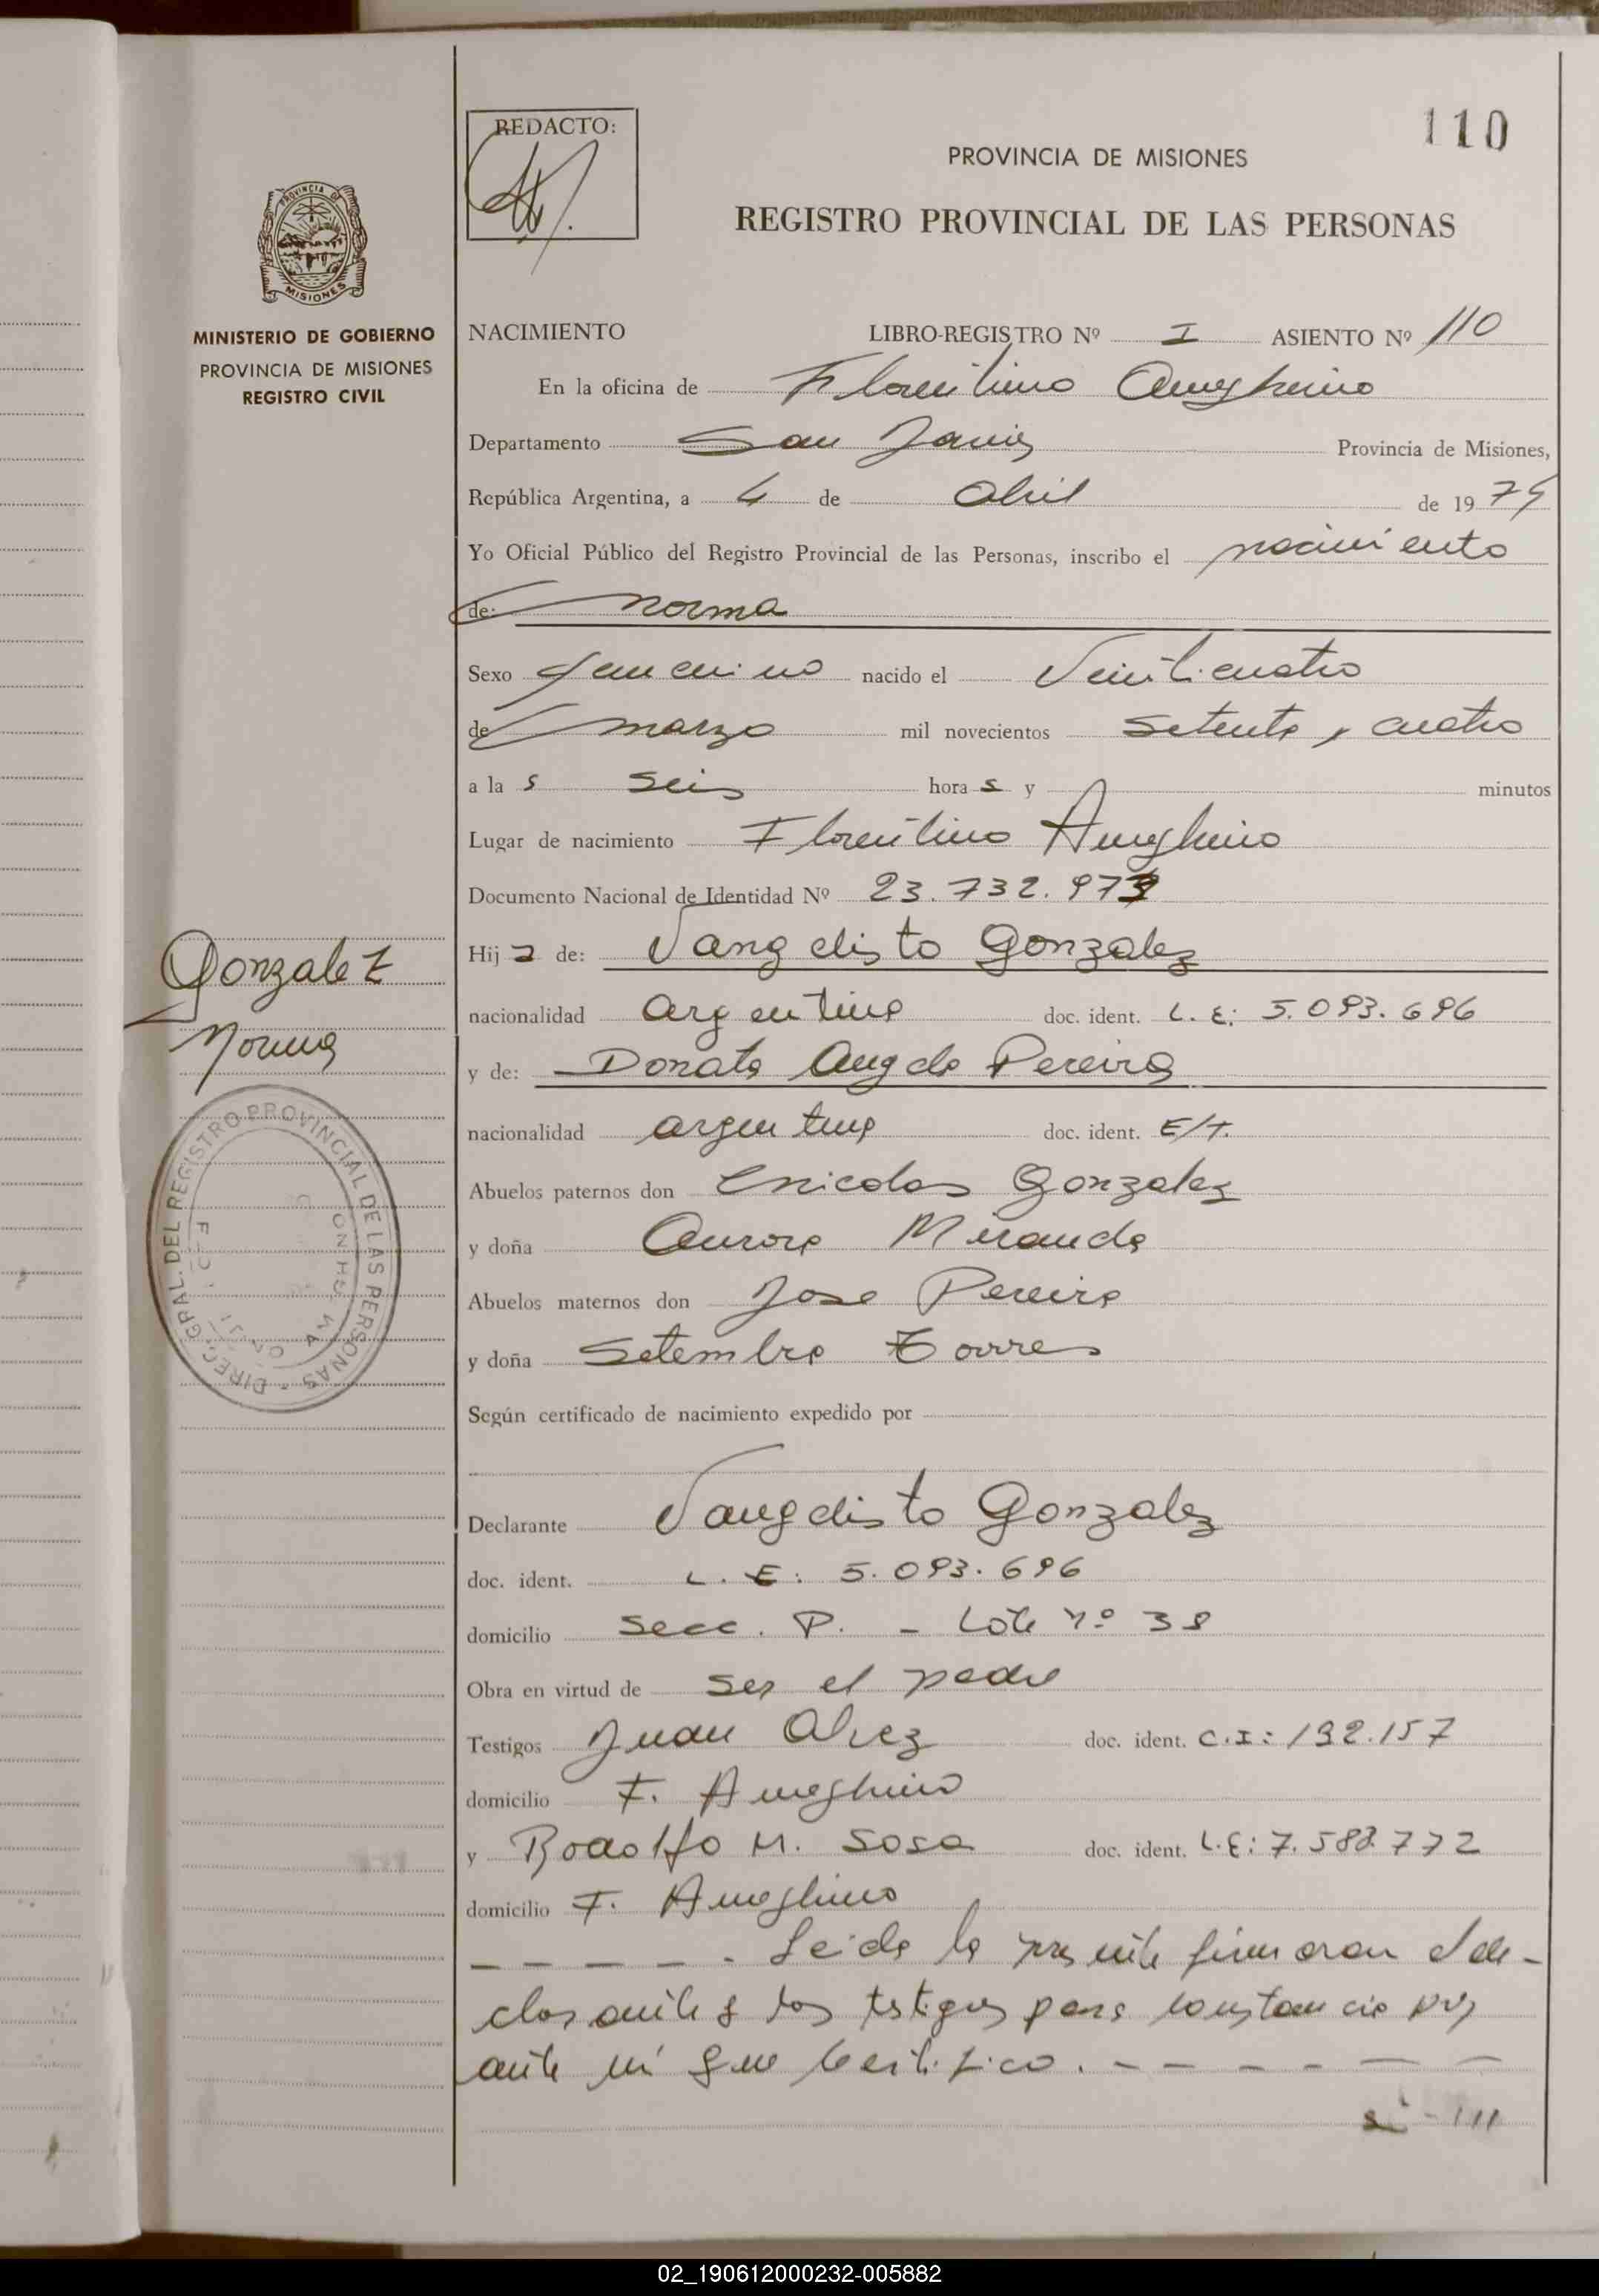 110
REDACTO:
PROVINCIA DE MISIONES
REGISTRO PROVINCIAL DE LAS PERSONAS
PROVINCIA DE
MISIONES
MINISTERIO DE GOBIERNO
PROVINCIA DE MISIONES
REGISTRO CIVIL
NACIMIENTO LIBRO-REGISTRO Nº I ASIENTO Nº 110
En la oficina de Florentino Ameghino
Departamento San Javier Provincia de Misiones,
República Argentina, a 4 de abril de 19
Yo Oficial Público del Registro Provincial de las Personas, inscribo el nacimiento
de: Norma
Sexo femenino nacido el Veinticuatro
de marzo mil novecientos setenta y cuatro
a la s seis hora s y minutos
Lugar de nacimiento Florentino Ameghino
Documento Nacional de Identidad Nº
Hij a de: Vangelisto Gonzalez
nacionalidad argentina doc. ident. L. E: 5.093.696
y de: Donata Angela Pereira
nacionalidad argentina doc. ident. E/T.
Abuelos paternos don Gonzalez
y doña Aurora Miranda
Abuelos maternos don Jose Pereira
y doña Setembra Torres
Según certificado de nacimiento expedido por
Declarante Vangelisto Gonzalez
doc. ident. L. E: 5.093.696
domicilio Secc. P. - Lote Nº 38
Obra en virtud de ser el padre
Testigos Juan doc. ident. C.I: 192.157
domicilio F. Ameghino
y Rodolfo M. Sosa doc. ident. L.E:
domicilio F. Ameghino
- - - - - . Leida la presente firmaron el de-
clarante y los testigos para constancia por
ante mi que certifico. - - - - - -
Gonzalez
Norma
DIREC. GRAL. DEL REGISTRO PROVINCIAL DE LAS PERSONAS
02_190612000232-005882